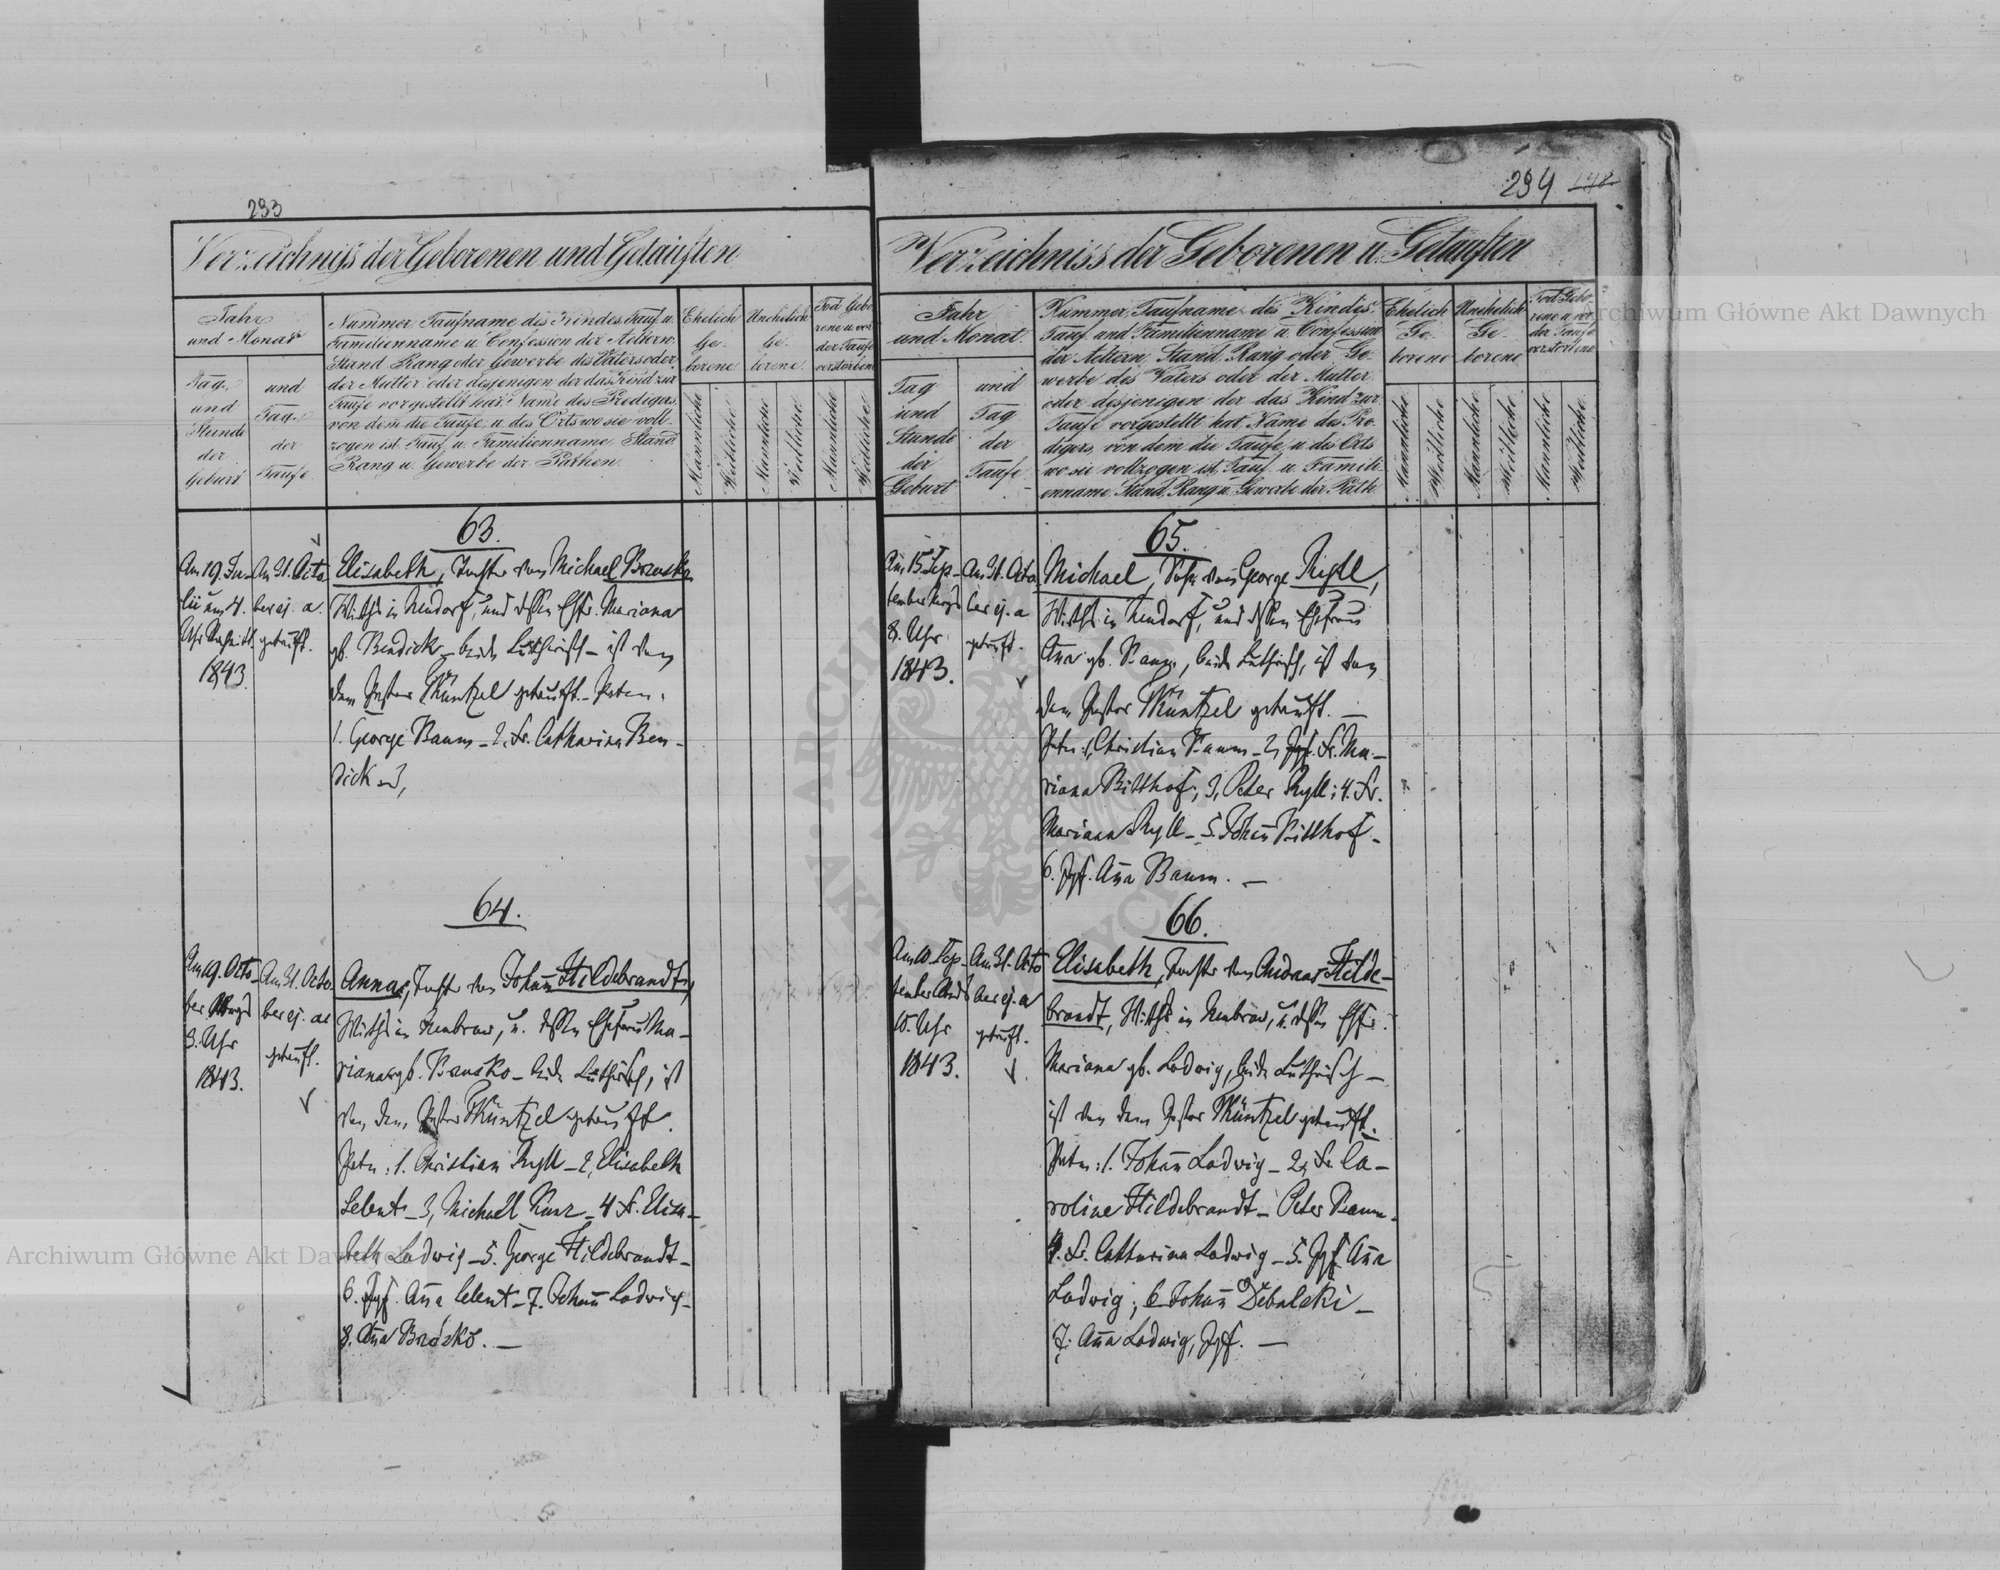 293
Verzeichniss der Geborenen und Getauften
Jahr
und Monat
Tag
und
Stunde
der
Geburt
und
Tag
der
Taufe
Nummer Taufname des Kindes Tauf u.
Familienname u Confession der Aeltern
Stand Rang oder Gewerbe des Vaters oder
der Mutter oder desjenigen der das Kind zur
Taufe vorgestellt hat. Name des Predigers
von dem die Taufe u. des Orts wo sie voll-
zogen ist. Tauf u. Familienname Stand
Rang u. Gewerbe der Pathen.
Ehelich
Ge-
borene
Unehelich
Ge-
borene
Tod Gebo
rene u. vor
der Taufe
verstorbene
Männliche
Weibliche
Männliche
Weibliche
Männliche
Weibliche
63.
Am 19. Ju-
lii um 4.
Uhr
1843.
Am 31. Octo
ber ej. a.
getauft.
Elisabeth, Tochter von Michael
Wirths in Neudorf, und dessen Ehfr. Mariana
gb. Bendick, beide Lutherisch - ist von
dem Pastor Küntzel getauft. Paten.
1. George Baum - 2. Fr. Catharina Ben-
dick - 3,
64.
Am 19. Octo
ber Morgs
3. Uhr
1843.
Am 31. Octo
ber ej. a
getauft.
Anna, Tochter von Johañ Hildebrandt,
Wirths in Neubrow, u. dessen Ehefrau Ma-
riana gb. Brzosko - beide Lutherisch, ist
von dem Pastor Küntzel getauft.
Paten: 1. Christian Ryll - 2, Elisabeth
Selent - 3, Michael Kunz - 4 Fr. Elisa-
beth Ludwig - 5. George Hildebrandt -
6. Jgf. Aña Selent - 7. Johañ Ludwig -
8. Aña Brzósko. -
294
Verzeichniss der Geborenen u. Getauften
Jahr
und Monat
Tag
und
Stunde
der
Geburt
und
Tag
der
Taufe
Nummer Taufname des Kindes
Tauf und Familienname u. Confession
der Aeltern Stand Rang oder Ge-
werbe des Vaters oder der Mutter
oder desjenigen der das Kind zur
Taufe vorgestellt hat Name des Pre-
digers, von dem die Taufe u. des Orts
wo sie vollzogen ist, Tauf u. Famili
enname, Stand, Rang u. Gewerbe der Path
Ehelich
Ge-
borene
Unehelich
Ge-
borene
Tod Gebo-
rene u. vor
der Taufe
verstorbene
Männliche
Weibliche
Männliche
Weibliche
Männliche
Weibliche
65.
Am 15. Sep-
tember Morgs
8. Uhr
1843.
Am 31. Octo
ber ej. a
getauft.
Michael, Sohn von George Ryll,
Wirths in Neudorf, und dessen Ehefrau
Aña gb. Baum, beide Lutherisch, ist von
dem Pastor Küntzel getauft. -
Paten: 1, Christian Baum - 2, Fr. Ma-
riana Bitthof; 3, Peter Ryll; 4. Fr.
Mariana Ryll - 5. Johañ Bitthof -
6. Jgf. Aña Baum. -
66.
Am 10. Sep-
tember Abds
10. Uhr
1843.
Am 31. Octo
ber ej. a
getauft.
Elisabeth, Tochter von Andreas Hilde-
brandt, Wirths in Neubrow, u. dessen Ehfr.
Mariana gb. Ludwig, beide Lutherisch -
ist von dem Pastor Küntzel getauft.
Paten: 1. Johañ Ludwig - 2, Fr. Ca-
roline Hildebrandt - Peter Baum -
4. Fr. Catharina Ludwig - 5. Jgf. Aña
Ludwig; 6 Johañ Debalski -
7. Aña Ludwig, Jgf. -
Archiwum Główne Akt Dawnych
Archiwum Główne Akt Dawnych